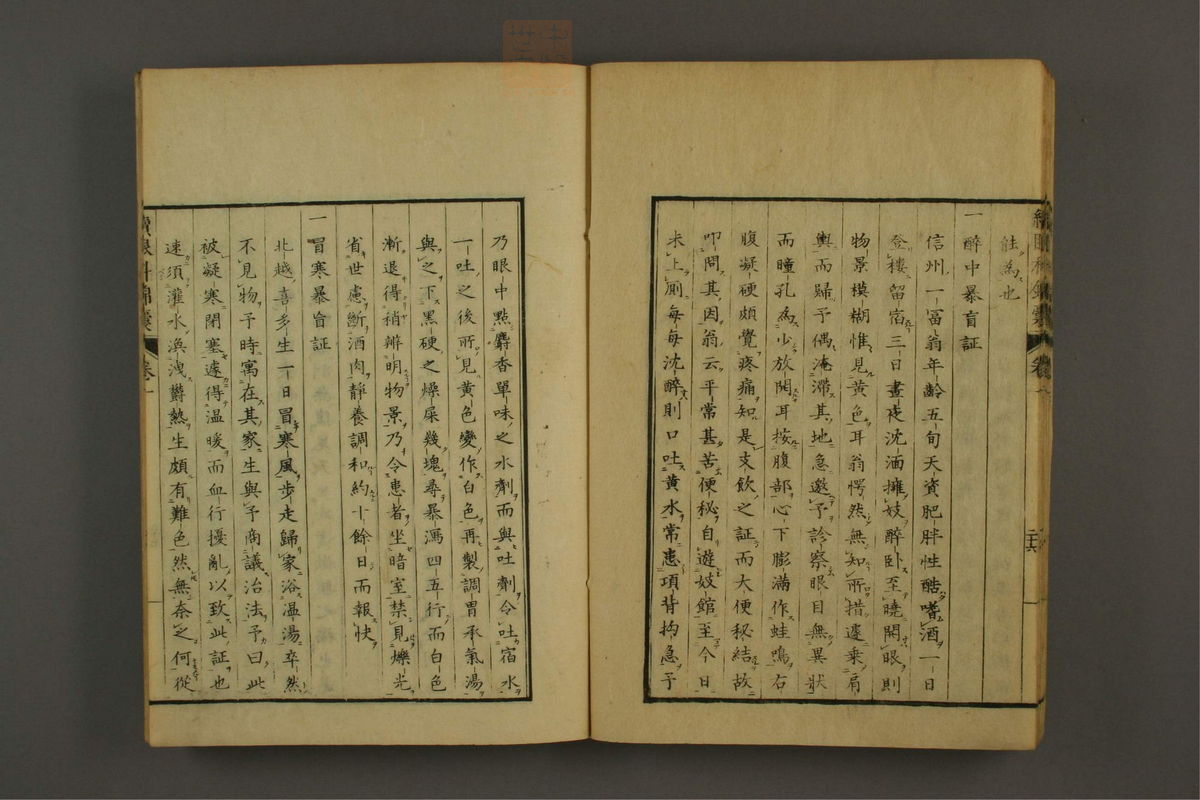 能為也
一醉中暴盲証
信州一冨翁年齡五旬天資肥胖性酷嗜酒一日
登樓留宿三日晝夜沈湎擁妓醉卧至曉開眼則
物景模糊惟見黄色耳翁愕然無知所措遽乘肩
輿而歸予偶淹滯其地急邀予診察眼目無異狀
而瞳孔為少放開耳按腹部心下膨滿作蛙鳴右
腹凝硬頗覺疼痛知是支飲之証而大便秘結故
叩問其因翁云平常甚苦便秘自遊妓館至今日
未上厠每每沈醉則口吐黄水常患項背拘急予
乃眼中點麝香單味之水劑而與吐劑令吐宿水
一吐之後所見黄色變作白色再製調胃承氣湯
與之下黑硬之燥屎幾塊尋暴瀉四五行而白色
漸退得稍辨明物景乃令患者坐暗室禁見爍光
省世慮斷酒肉靜養調和約十餘日而報快
一冒寒暴盲証
北越喜多生一日冒寒風步走歸家浴温湯卒然
不見物予時寓在其家生與予商議治法予曰此
被凝寒閉塞遽得温暖而血行擾亂以致此証也
速須灌水渙洩欝熱生頗有難色然無奈之何從
續眼科錦囊 卷一